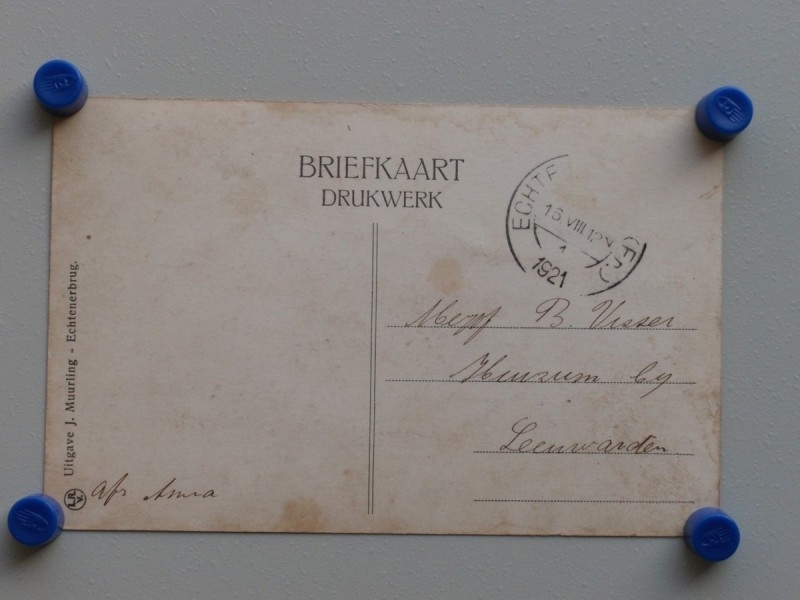 BRIEFKAART
DRUKWERK
ECHTE (FR.)
16.VIII.12N
1
1921
Mejuf B. Visser
Huizum by
Leeuwarden
Uitgave J. Muurling - Echtenerbrug.
afz Anna